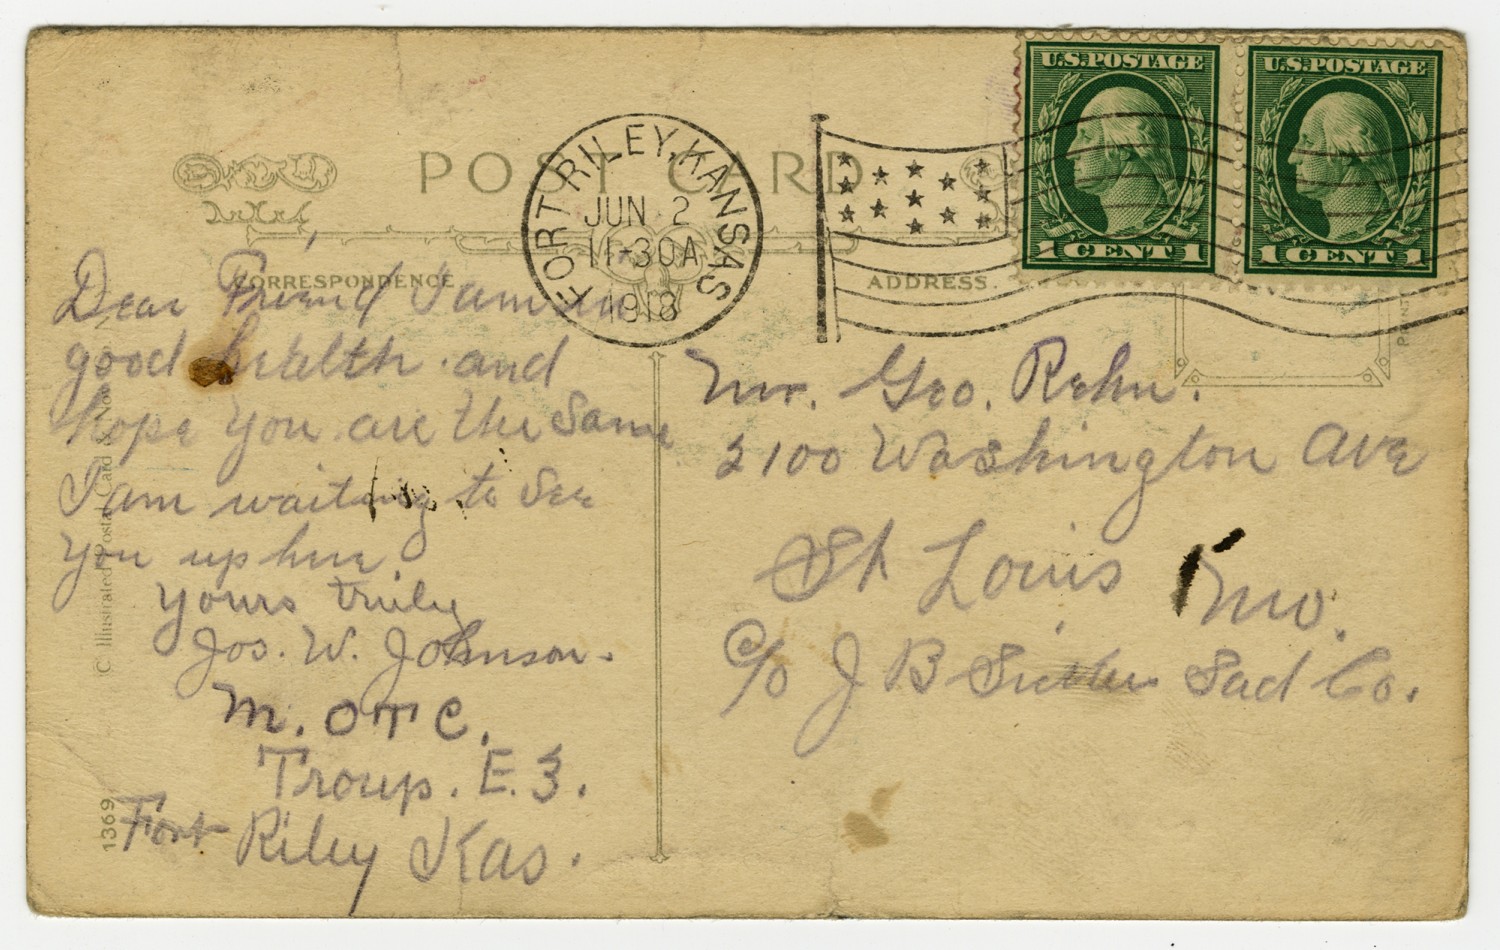 POST CARD
FORT RILEY, KANSAS
JUN 2
11-30A
1918
U.S. POSTAGE
1 CENT 1
U.S. POSTAGE
1 CENT 1
CORRESPONDENCE
ADDRESS.
Dear Friend I am in
good health and
hope you are the Same
I am waiting to See
you up here
Yours truly
Jos. W. Johnson.
M. OTC.
Troup. E. 3.
Fort Riley Kas.
Mr. Geo. Rehn.
2100 Washington Ave
St Louis Mo.
C/o J B Sad Co.
C Illustrated Postal Card & Nov.
1369